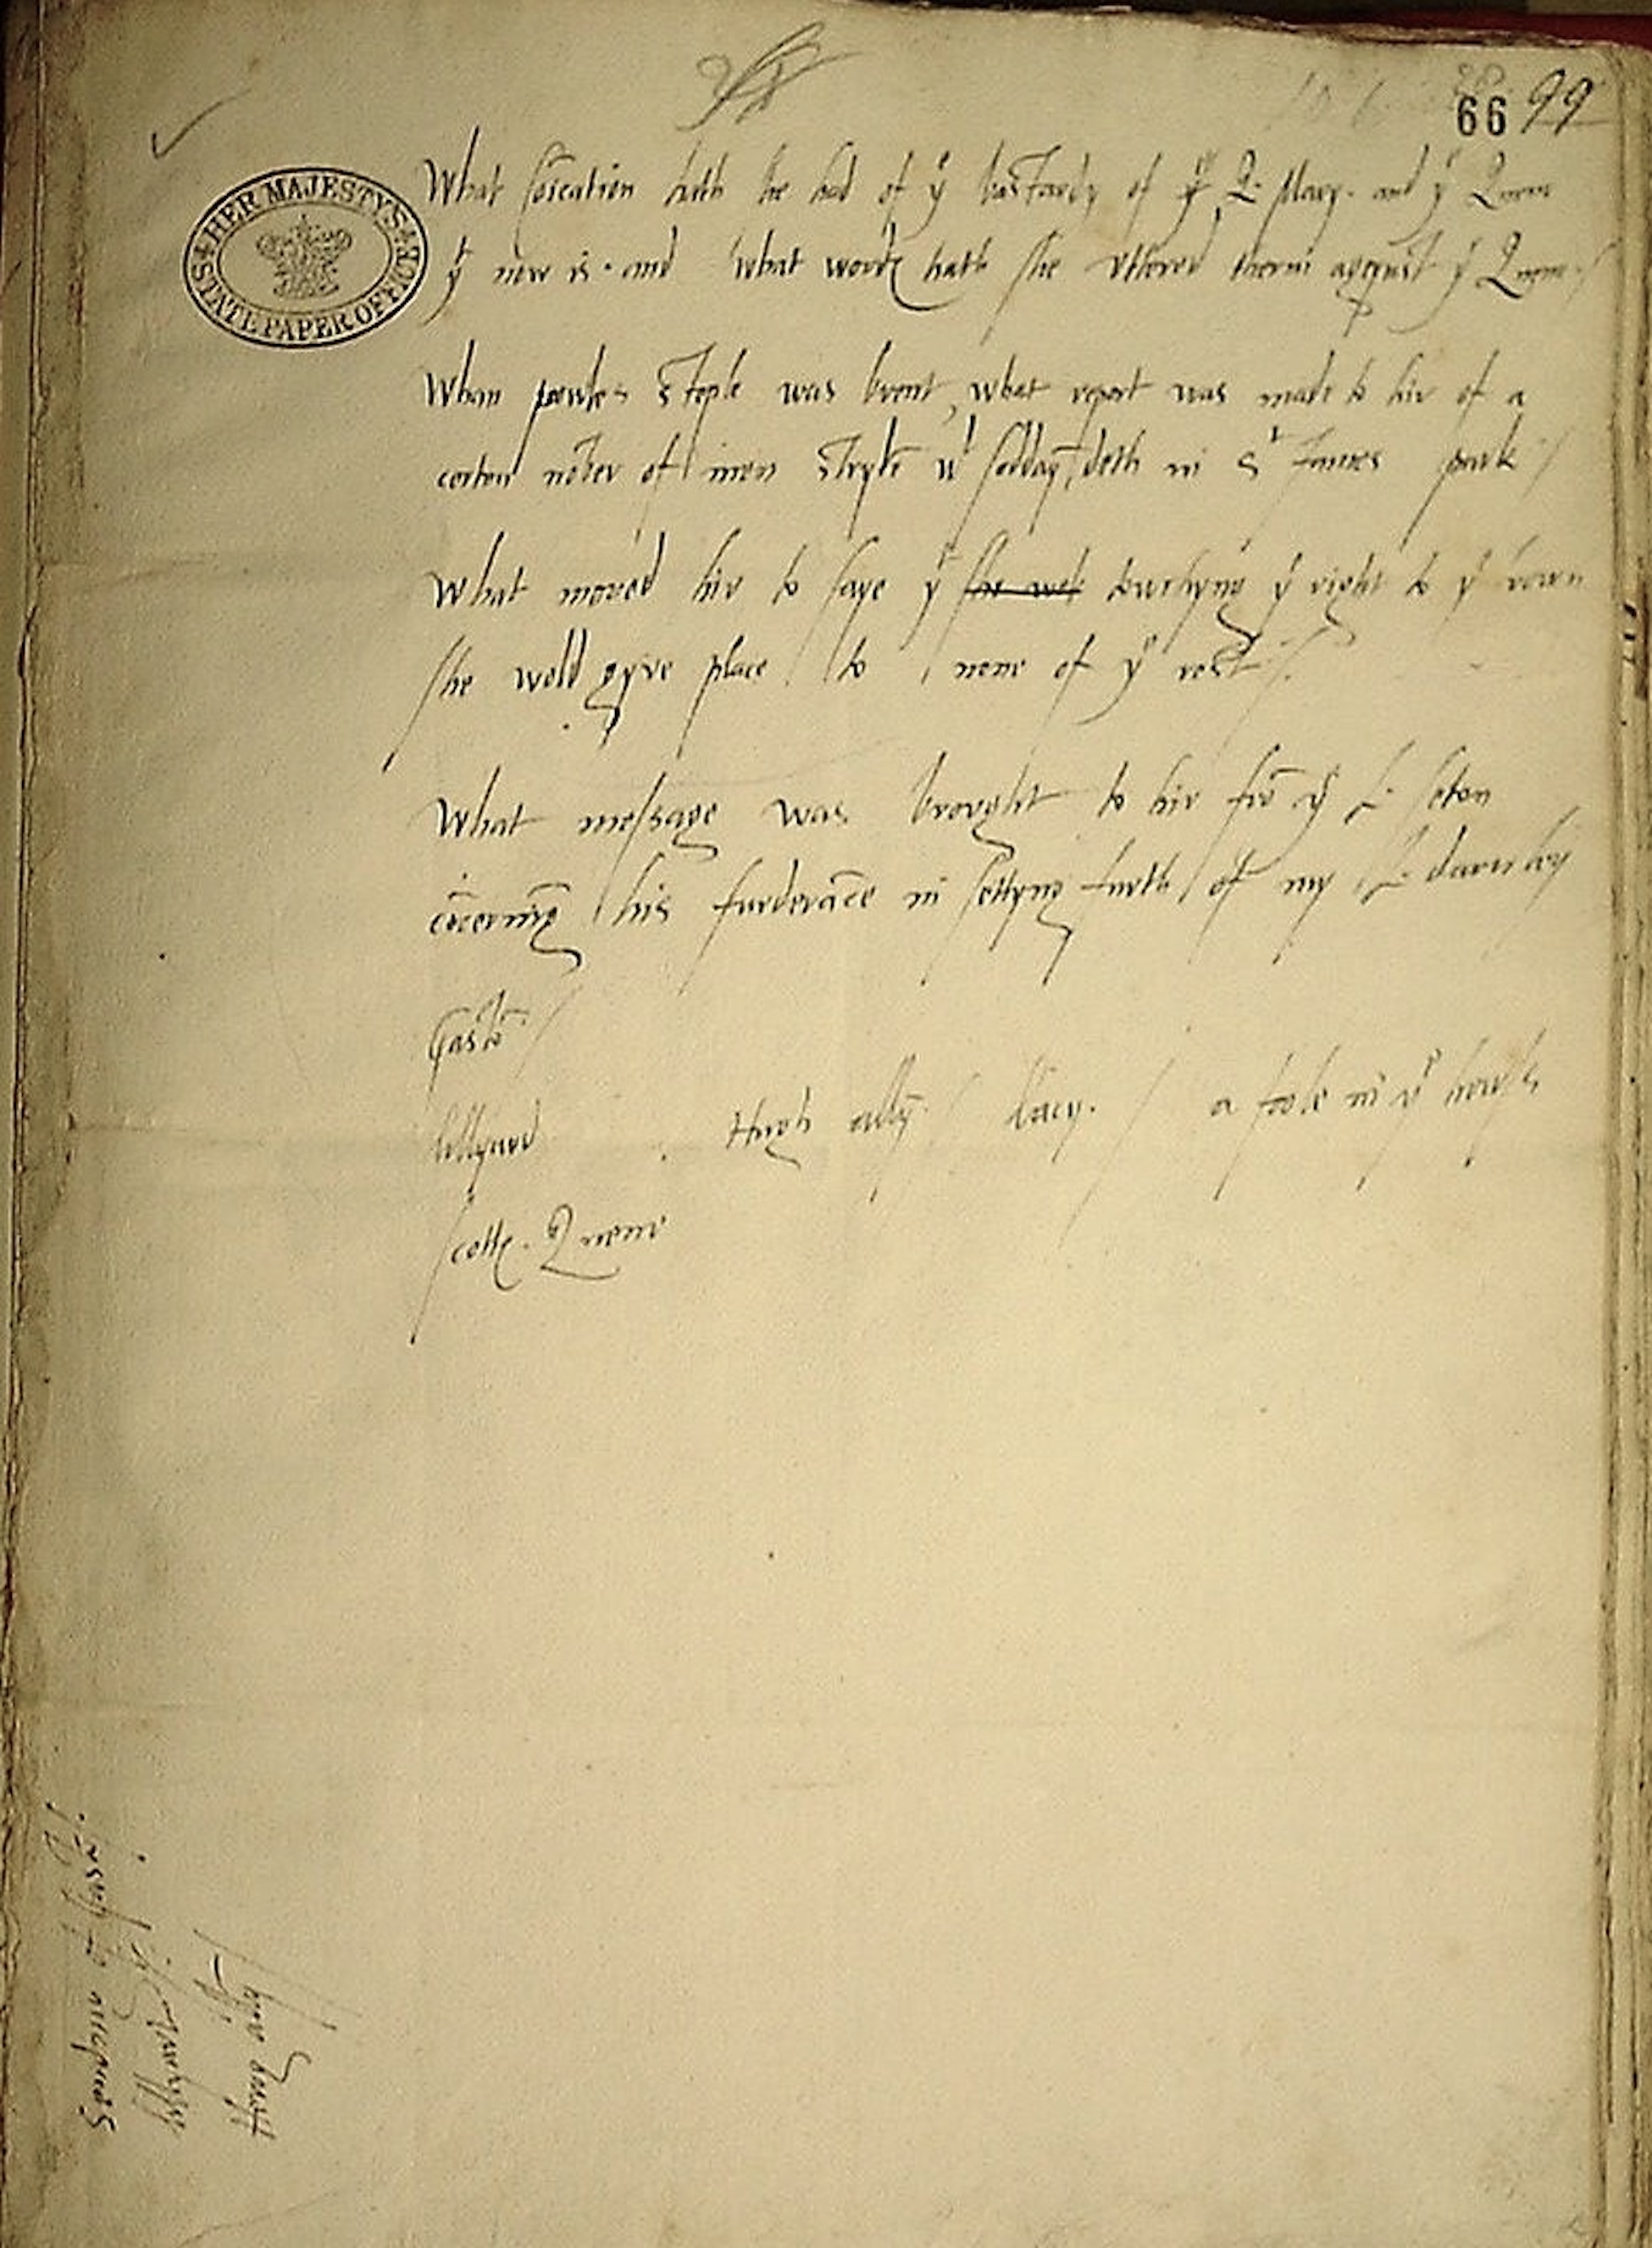 66 99
HER MAJESTY'S STATE PAPER OFFICE
What cōication hath she had of yᵉ bastardy of yᵉ Q. Mary. and yᵉ Quene
yᵗ now is. and what word hath she vttered therin against yᵉ Quene /
Whan powles steple was brent, what report was made to hir of a
certen nober of men stryke wᵗ sodday deth in Sᵗ James park /
What moved hir to saye yᵗ towchyng yᵉ right to yᵉ crown
she wold gyve place to none of yᵉ rest /
What message was brought to hir frō yᵉ L. seton
cōcernīg his furderāce in settyng furth of my L. darnley
Gastō /
hillyard Hugh ally. / lacy. / a fole in yᵉ howse
scott. Quene
Hugh ally
hillyard